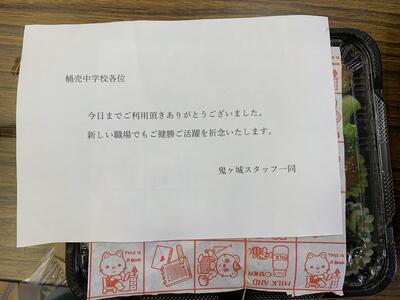 桶売中学校各位
今日までご利用頂きありがとうございました。
新しい職場でもご健勝ご活躍を祈念いたします。
鬼ヶ城スタッフ一同
THIS IS
A Book
MILK AND
CANDY
MILK
THIS IS
A Book